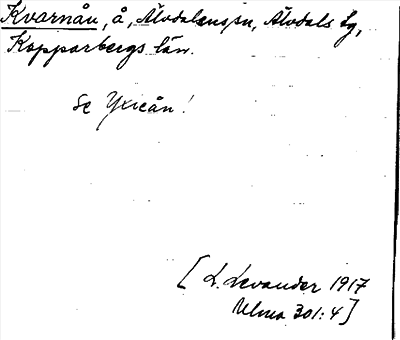 Kvarnån, å, Älvdalens sn, Älvdals tg,
Kopparbergs län.
Se Yxieån!
[L. Levander 1917
Ulma 301:4]